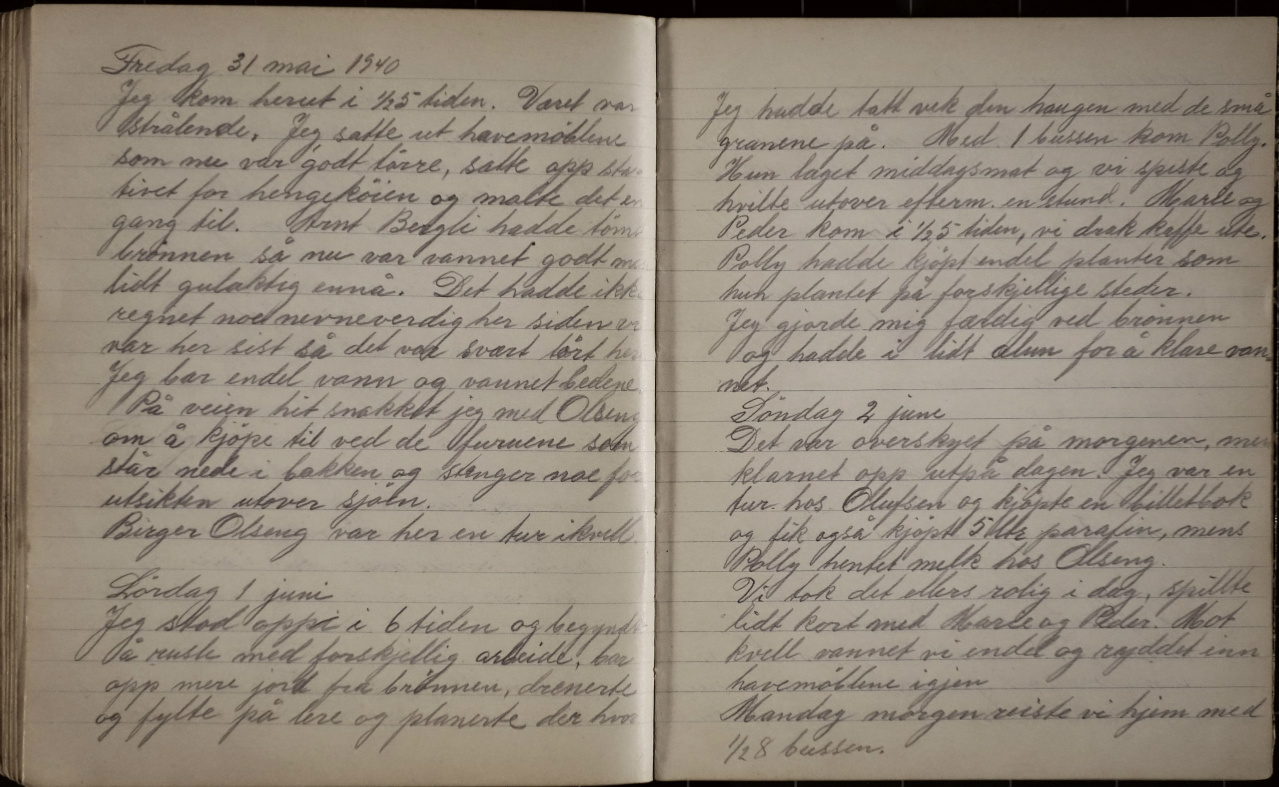 Fredag 31 mai 1940
Jeg kom herut i 1/2 5 tiden. Været var
strålende. Jeg satte ut havemøblene
som nu var godt törre, satte opp sta-
tivet for hengeköien og malte det en
gang til. Arnt Bergli hadde tömt
brönnen så nu var vannet godt me
lidt gulaktig ennå. Det hadde ikke
regnet noe nevneverdig her siden vi
var her sist så det var svært tört her
Jeg bar endel vann og vannet bedene
På veien hit snakket jeg med Olseng
om å kjöpe til ved de furuene som
står nede i bakken og stenger noe for
utsikten utover sjöen.
Birger Olseng var her en tur ikvell.
Lördag 1 juni
Jeg stod oppi i 6 tiden og begyndt
å rusle med forskjellig arbeide, bar
opp mere jord fra brönnen, drenerte
og fylte på lere og planerte der hvor
Jeg hadde tatt vek den haugen med de små
granene på. Med 1 bussen kom Polly.
Hun laget middagsmat og vi spiste og
hvilte utover efterm. en stund. Marie og
Peder kom i 1/2 5 tiden, vi drak kaffe ute.
Polly hadde kjöpt endel planter som
hun plantet på forskjellige steder.
Jeg gjorde mig færdig ved brönnen
og hadde i lidt alun for å klare van-
net.
Söndag 2 june
Det var overskyet på morgenen, men
klarnet opp utpå dagen. Jeg var en
tur hos Olufsen og kjöpte en billetbok
og fik også kjöpt 5 ltr parafin, mens
Polly hentet melk hos Olseng.
Vi tok det ellers rolig i dag, spillte
lidt kort med Marie og Peder. Mot
kvell vannet vi endel og ryddet inn
havemöblene igjen
Mandag morgen reiste vi hjem med
1/2 8 bussen.